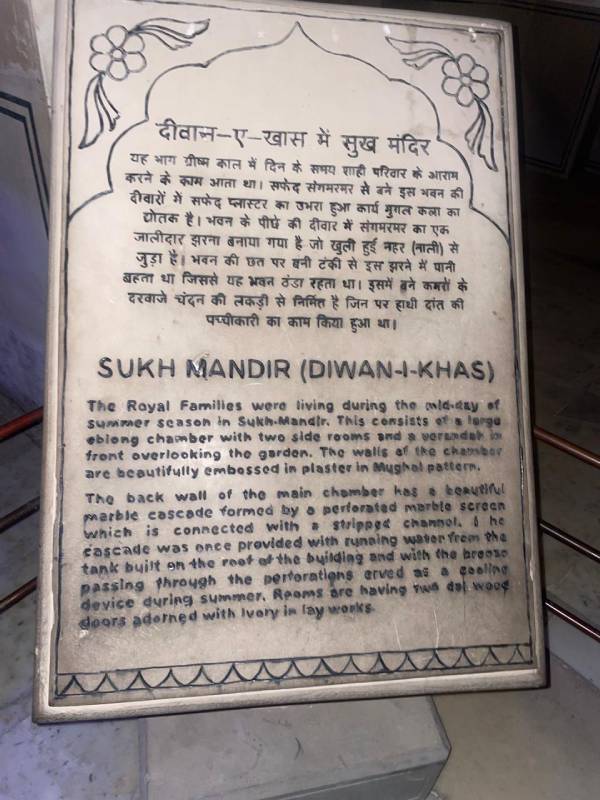 दीवान-ए-खास में सुख मंदिर
यह भाग ग्रीष्म काल में दिन के समय शाही परिवार के आराम
करने के काम आता था। सफेद संगमरमर से बने इस भवन की
दीवारों में सफेद प्लास्टर का उभरा हुआ कार्य मुगल कला का
द्योतक है। भवन के पीछे की दीवार में संगमरमर का एक
जालीदार झरना बनाया गया है जो खुली हुई नहर (नाली) से
जुड़ा है। भवन की छत पर बनी टंकी से इस झरने में पानी
बहता था जिससे यह भवन ठंडा रहता था। इसमें बने कमरों के
दरवाजे चंदन की लकड़ी से निर्मित है जिन पर हाथी दांत की
पच्चीकारी का काम किया हुआ था।
SUKH MANDIR (DIWAN-I-KHAS)
The Royal Families were living during the mid-day of
summer season in Sukh-Mandir. This consists of a large
oblong chamber with two side rooms and a verandah in
front overlooking the garden. The walls of the chamber
are beautifully embossed in plaster in Mughal pattern.
The back wall of the main chamber has a beautiful
marble cascade formed by a perforated marble screen
which is connected with a stripped channel. The
cascade was once provided with running water from the
tank built on the roof of the building and with the breeze
passing through the perforations erved as a cooling
device during summer. Rooms are having two dal wood
doors adorned with Ivory in lay works.